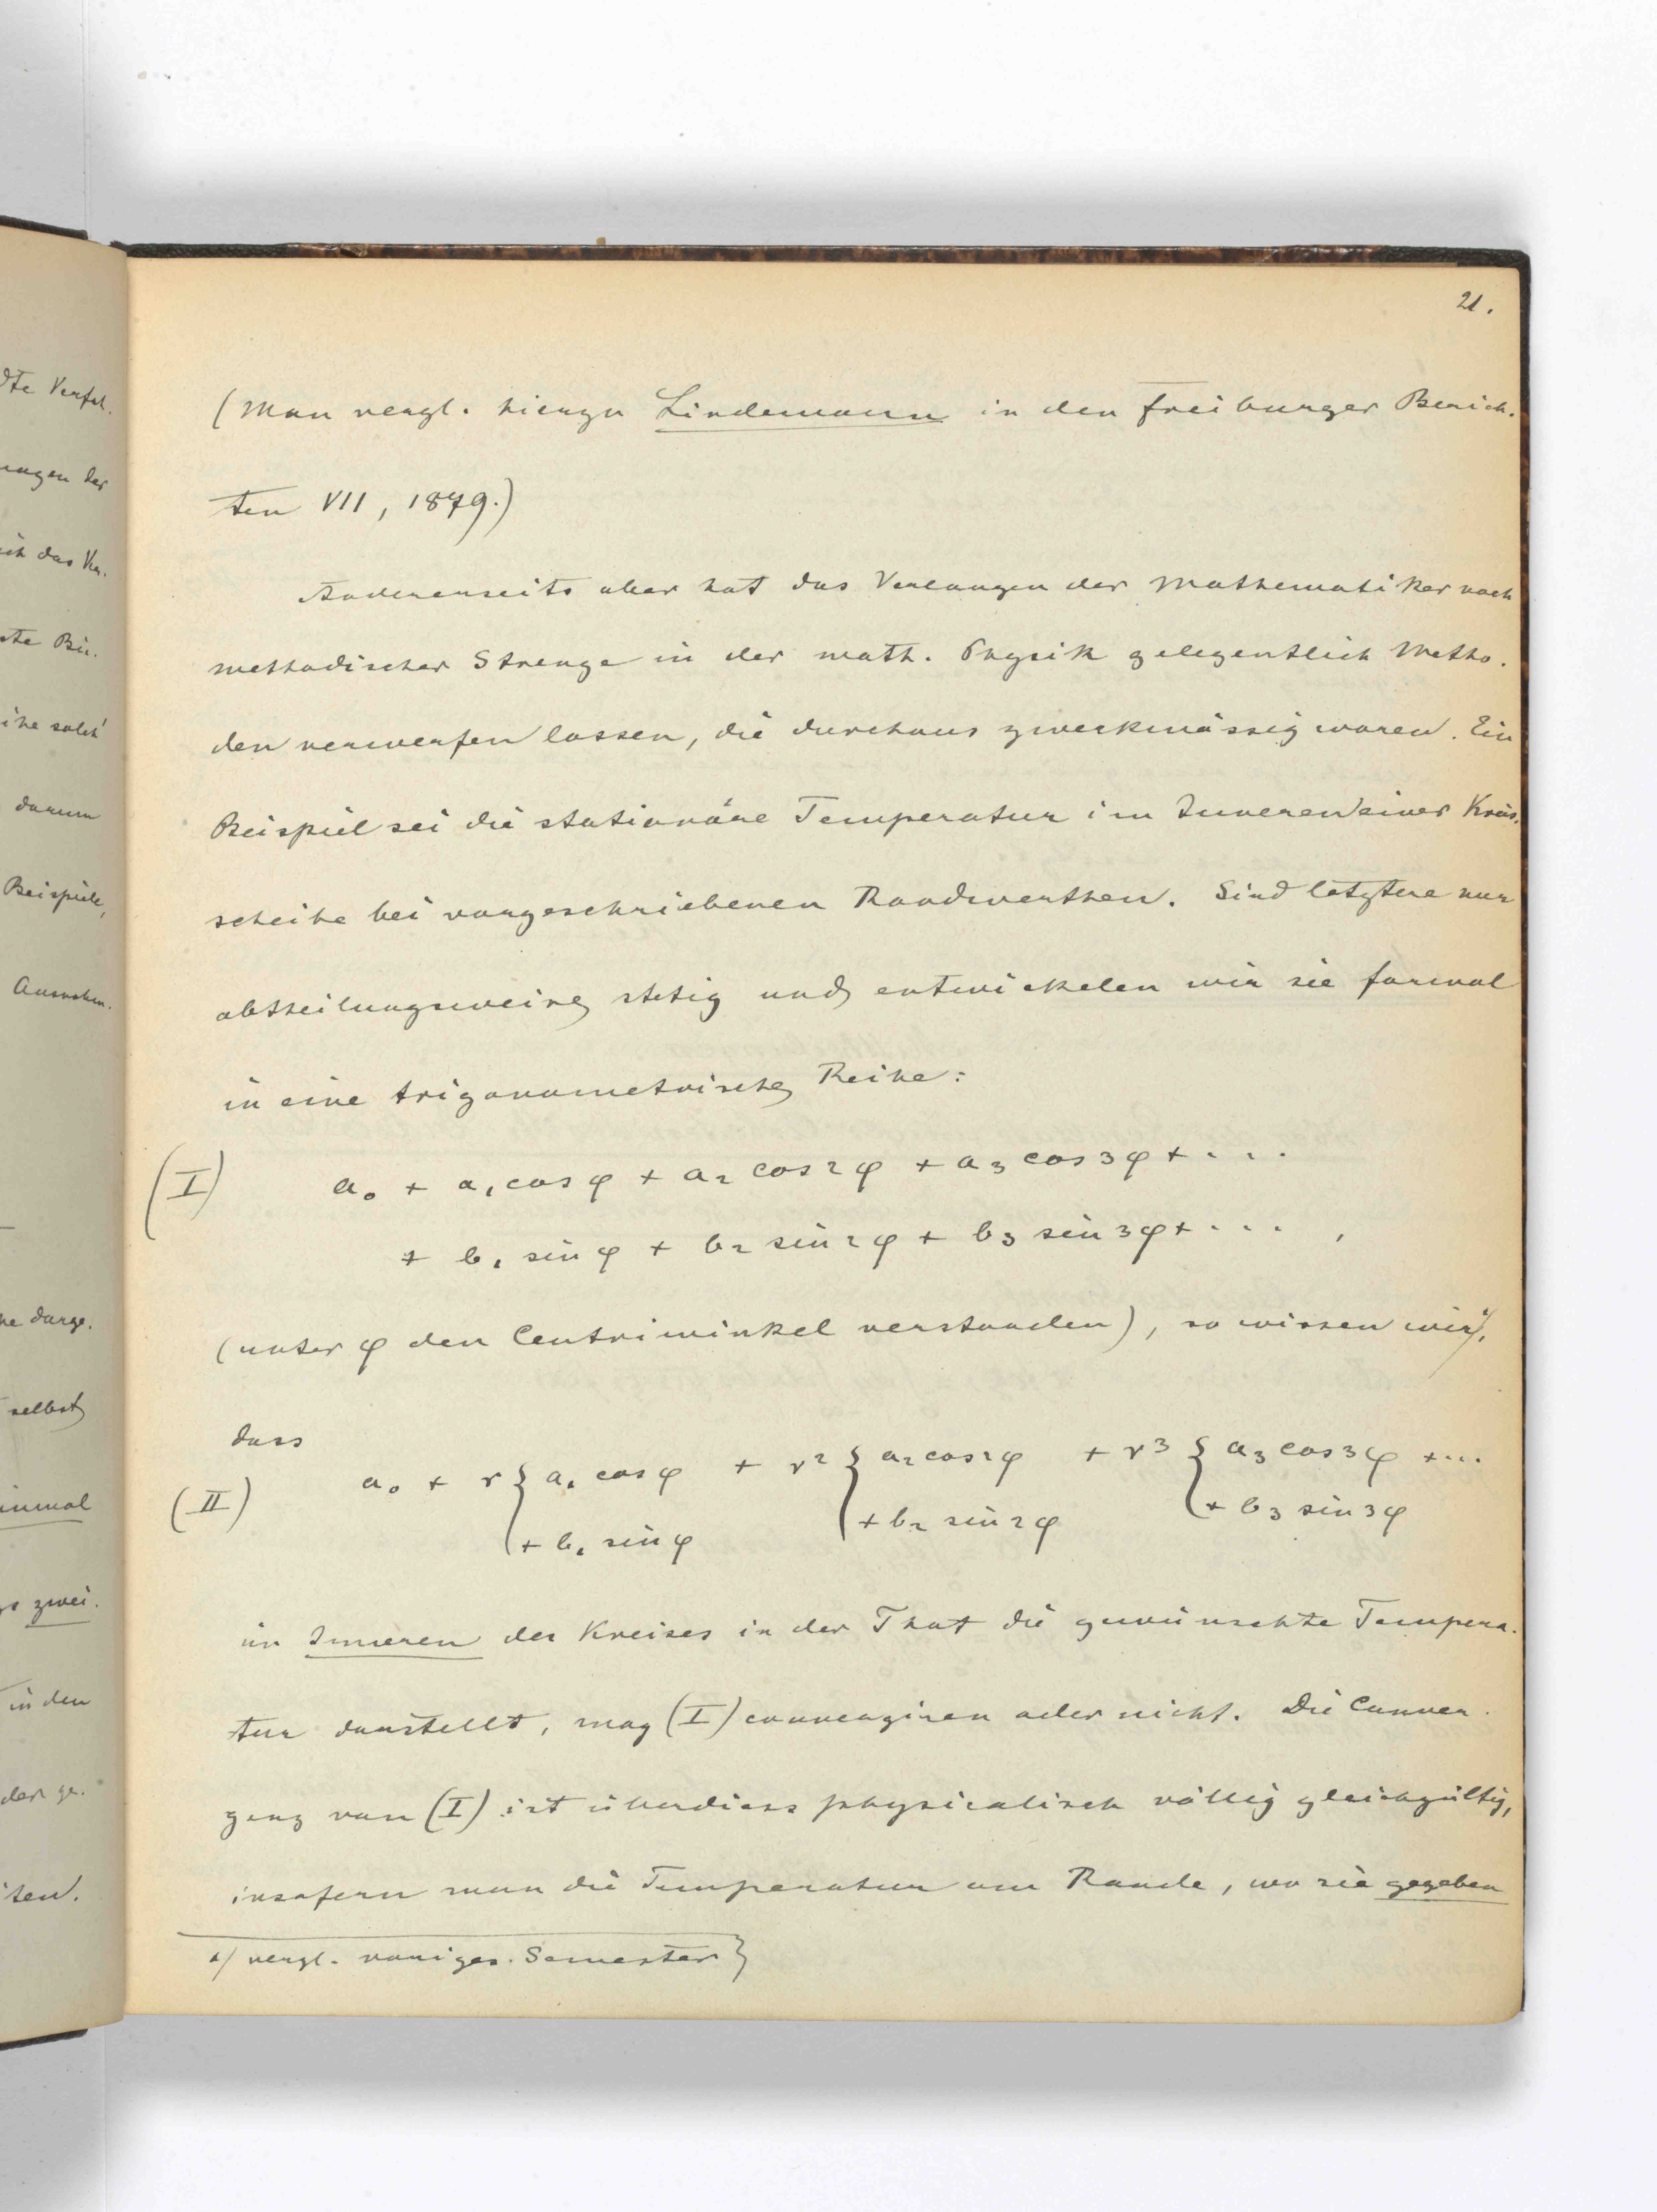 dte Verfah.
ungen der
ich das Ver.
ste Bei.
ine solch'
darum
Beispiele,
Ausnahm.
ne darge.
selbst
inmal
zwei.
in den
der ge.
ten.
21.
(Man vergl. hierzu Lindemann in den Freiburger Berich-
ten VII, 1879.)
Andererseits aber hat das Verlangen der Mathematiker nach
methodischer Strenge in der math. Physik gelegentlich Metho-
den verwerfen lassen, die durchaus zweckmässig waren. Ein
Beispiel sei die stationäre Temperatur im Inneren einer Kreis-
scheibe bei vorgeschriebenen Randwerthen. Sind letztere nur
abtheilungsweise stetig und entwickelen wir sie formal
in eine trigonometrische Reihe:
(I) a₀ + a₁ cos φ + a₂ cos 2φ + a₃ cos 3φ + . . .
+ b₁ sin φ + b₂ sin 2φ + b₃ sin 3φ + . . . ,
(unter φ den Centriwinkel verstanden), so wissen wir¹⁾,
dass
(II) a₀ + r { a₁ cos φ + r² { a₂ cos 2φ + r³ { a₃ cos 3φ + ...
+ b₁ sin φ + b₂ sin 2φ + b₃ sin 3φ
im Inneren des Kreises in der That die gewünschte Tempera-
tur darstellt, mag (I) convergiren oder nicht. Die Conver-
genz von (I) ist überdiess physicalisch völlig gleichgültig,
insofern man die Temperatur am Rande, wo sie gegeben
¹⁾ vergl. voriges Semester }